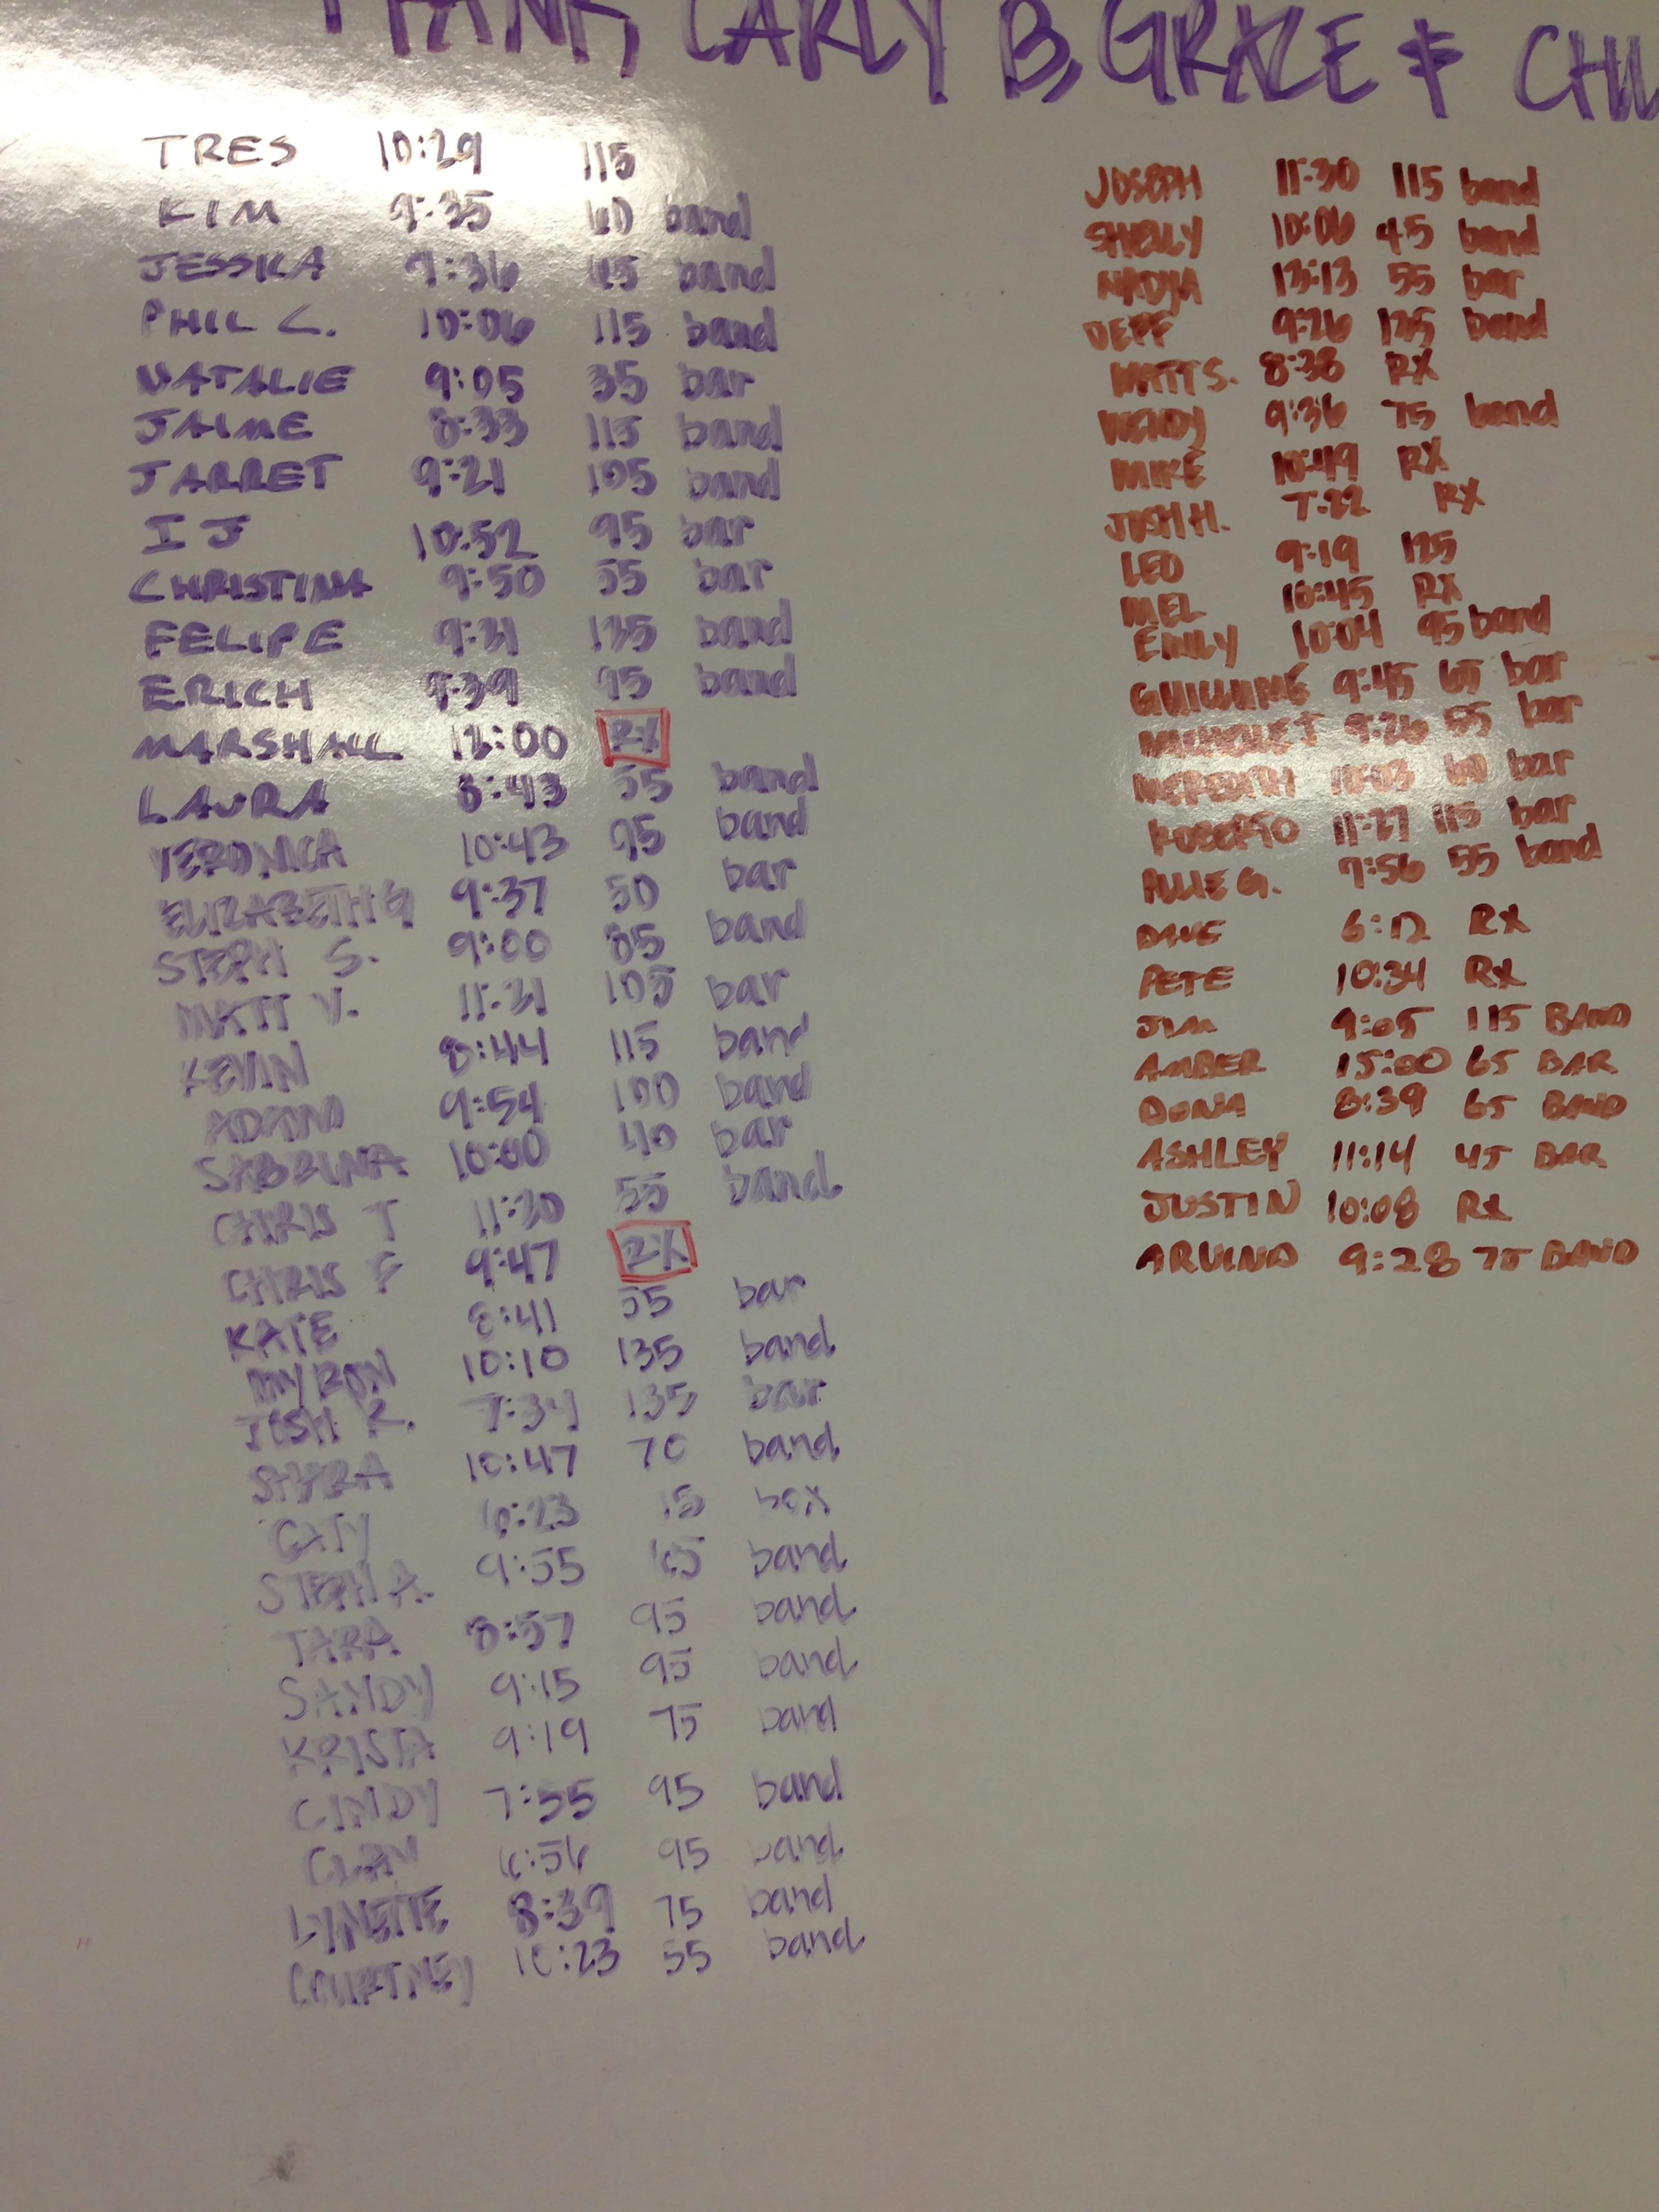 CARLY B, GRACE & CHU
TRES 10:29 115
KIM 9:35 60 band
JESSKA 9:36 45 band
PHIL C. 10:06 115 band
NATALIE 9:05 35 bar
JAIME 8:33 115 band
JARRET 9:21 105 band
IJ 10:52 95 bar
CHRISTINA 9:50 55 bar
FELIPE 9:31 135 band
ERICH 9:39 95 band
MARSHALL 12:00 RX
LAURA 8:43 55 band
VERONICA 10:43 95 band
ELIZABETH G 9:37 50 bar
STEPH S. 9:00 85 band
MATT V. 11:21 105 bar
KEVIN 8:44 115 band
ADAM 9:54 100 band
SABRINA 10:00 40 bar
CHRIS T 11:20 55 band
CHRIS F 9:47 RX
KATE 8:41 55 bar
MYRON 10:10 135 band
JOSH R. 7:34 135 bar
SHARA 10:47 70 band
CATY 10:23 15 box
STEPH A. 9:55 band
TARA 8:57 95 band
SANDY 9:15 95 band
KRISTA 9:19 75 band
CINDY 7:55 95 band
CLAY 6:56 95 band
LYNETTE 8:39 75 band
COURTNEY 10:23 55 band
JOSEPH 11:30 115 band
SHELLY 10:06 45 band
NADJA 13:13 55 bar
DEPP 9:26 125 band
MATT S. 8:38 RX
WENDY 9:36 75 band
MIKE 10:49 RX
JOSH H. 7:22 RX
LEO 9:19 125
MEL 10:45 RX
EMILY 10:04 95 band
GUILLUME 9:45 65 bar
9:26 55 bar
MEREDITH 10:03 60 bar
ROBERTO 11:27 115 bar
ALLIE G. 9:56 55 band
DAVE 6:12 RX
PETE 10:34 RX
JIM 9:05 115 BAND
AMBER 15:00 65 BAR
DONA 8:39 65 BAND
ASHLEY 11:14 45 BAR
JUSTIN 10:08 RX
ARVIND 9:28 75 BAND